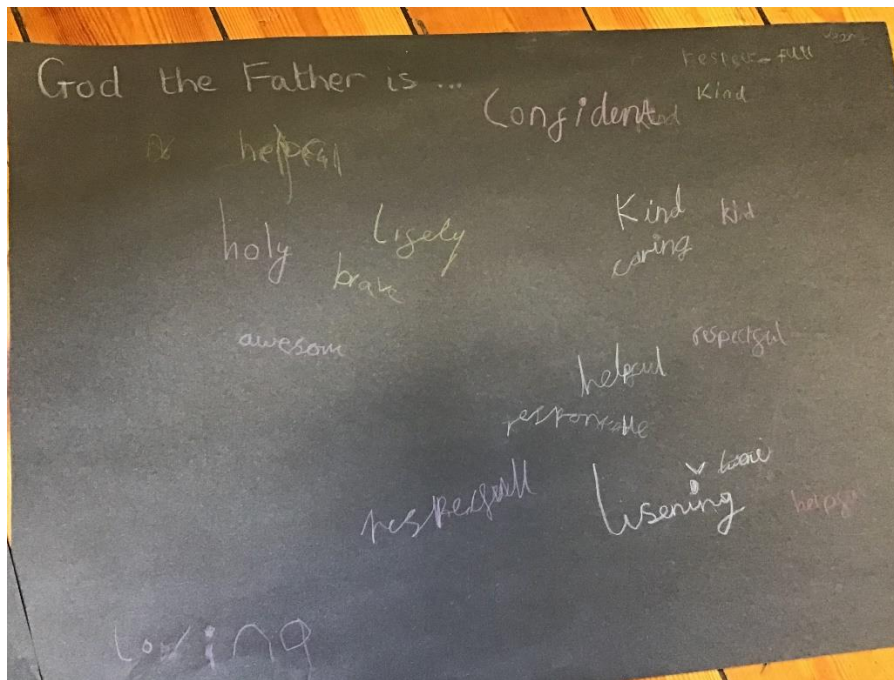 God the Father is ...
respect-full
Kind
Confident
helpful
holy
lifely
brave
Kind
kid
caring
awesom
respectful
helpful
respectfull
lisening
helpful
loving